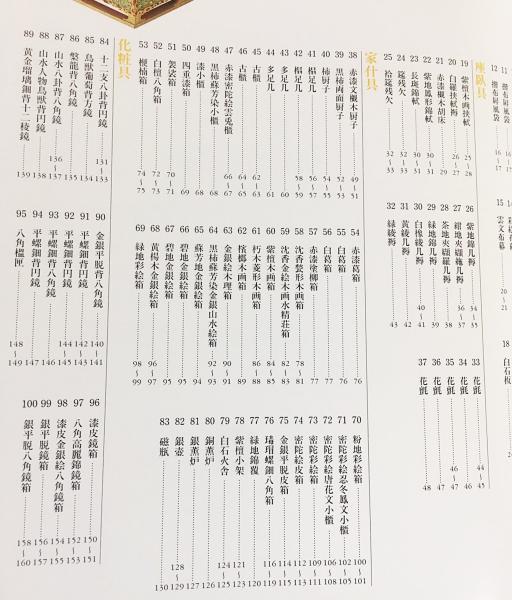 11 揩布屏風袋
12 揩布屏風袋
15 雲文布幕
18 白石板
座臥具
19 紫檀木画挟軾 25
20 白羅挟軾褥 26〜27
21 赤漆槻木胡床 28〜29
22 紫地鳳形錦軾 30
23 長斑錦軾 30〜31
24 筵残欠 32
25 袷筵残欠 32〜33
26 紫地錦几褥 34〜35
27 紺地夾纈絁几褥 36〜37
28 茶地夾纈羅几褥 38
29 緑地錦几褥 39
30 白橡綾几褥 40〜41
31 黄綾几褥 42
32 緑綾褥 43
33 花氈 44〜45
34 花氈 46
35 花氈 46〜47
36 花氈 47
37 花氈 48
家什具
38 赤漆文槻木厨子 49〜51
39 黒柿両面厨子 52〜53
40 柿厨子 54〜55
41 榻足几 56〜57
42 榻足几 58〜59
43 多足几 60
44 多足几 61
45 古櫃 62
46 古櫃 62〜63
47 赤漆密陀絵雲兎櫃 64〜66
48 黒柿蘇芳染小櫃 66〜67
49 漆小櫃 68
50 四重漆箱 69
51 袈裟箱 70〜71
52 白檀八角箱 72〜73
53 梗楠箱 74〜75
54 赤漆葛箱 76
55 白葛箱 76
56 白葛箱 77
57 赤漆塗柳箱 77
58 沈香鬘形木画箱 78〜81
59 沈香金絵木画水精荘箱 82〜83
60 紫檀木画箱 84〜85
61 朽木菱形木画箱 86〜88
62 檳榔木画箱 89
63 金銀絵木理箱 90〜91
64 黒柿蘇芳染金銀山水絵箱 92〜93
65 蘇芳地金銀絵箱 94
66 碧地金銀絵箱 95
67 碧地金銀絵箱 96
68 黄楊木金銀絵箱 96〜97
69 緑地彩絵箱 98〜99
70 粉地彩絵箱 100〜101
71 密陀絵忍冬鳳文小櫃 102〜105
72 密陀彩絵唐花文小櫃 106〜108
73 密陀彩絵箱 109〜111
74 密陀絵皮箱 112〜113
75 金銀平脱皮箱 114〜115
76 瑇瑁螺鈿八角箱 116〜119
77 緑地錦覆 120
78 紫檀小架 121〜123
79 白石火舎 124〜125
80 銅薫炉 126
81 銀薫炉 127
82 銀壺 128〜129
83 磁瓶 130
化粧具
84 十二支八卦背円鏡 131〜133
85 鳥獣葡萄背方鏡 134
86 槃龍背八角鏡 135
87 山水八卦背八角鏡 136〜137
88 山水人物鳥獣背円鏡 138
89 黄金瑠璃鈿背十二稜鏡 139
90 金銀平脱背八角鏡 140〜141
91 平螺鈿背円鏡 142
92 平螺鈿背円鏡 142〜143
93 平螺鈿背八角鏡 144〜145
94 平螺鈿背円鏡 146
95 八角榲匣 148〜149
96 漆皮鏡箱 150〜151
97 八角高麗錦鏡箱 152
98 漆皮金銀絵八角鏡箱 153〜155
99 銀平脱鏡箱 156〜157
100 銀平脱八角鏡箱 158〜160